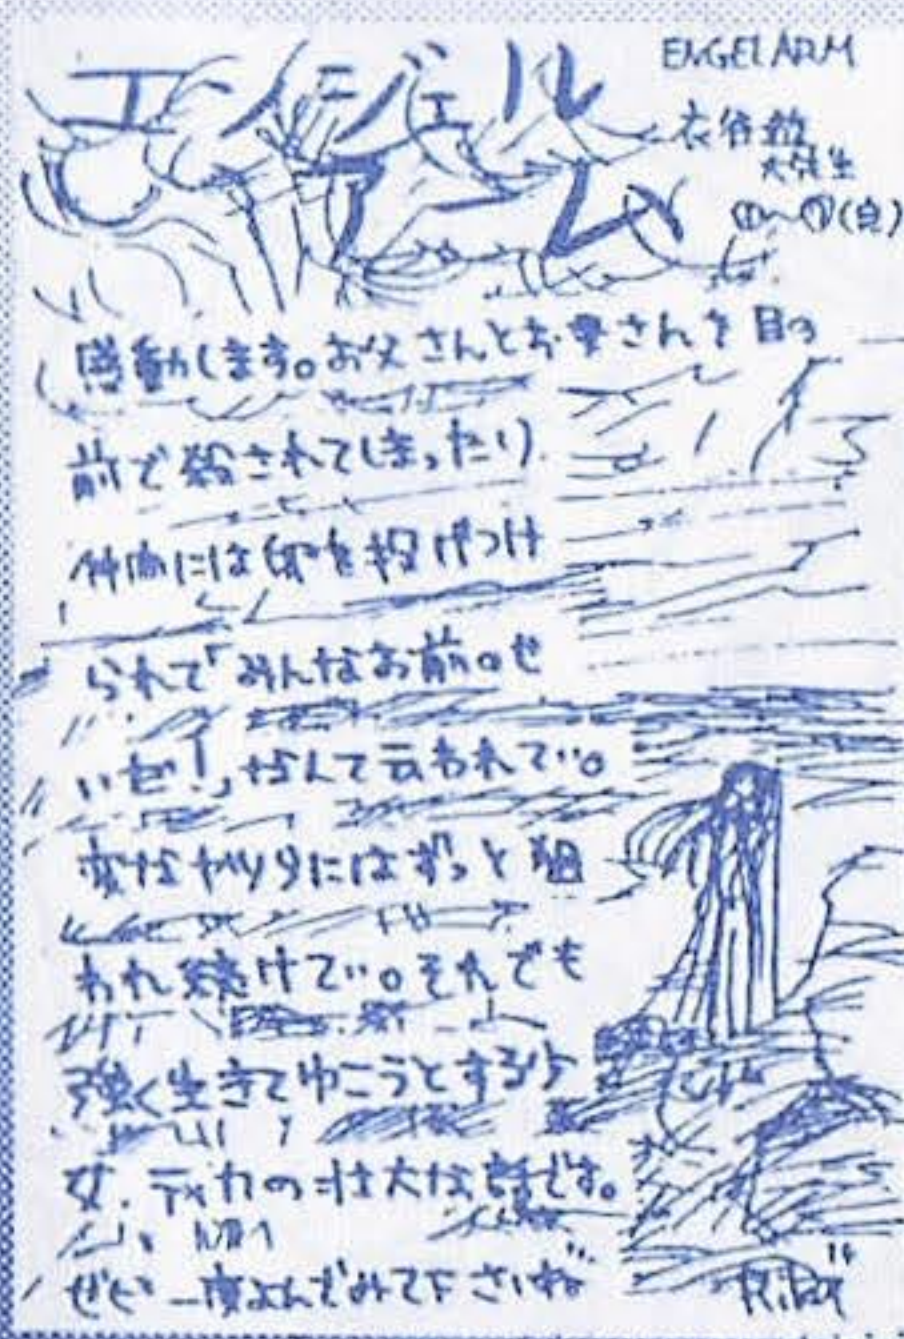 ENGEL ARM
エンジェル
アーム
衣谷遊
大先生
①〜⑦(完)
感動します。お父さんとお母さんを目の
前で殺されてしまったり
仲間には卵を投げつけ
られて「みんなお前のせ
いだ!」なんて云われて…。
変なヤツりにはずっと狙
われ続けて…。それでも
強く生きてゆこうとする少
女、ディカの壮大な話です。
ぜひ一度よんでみて下さいね